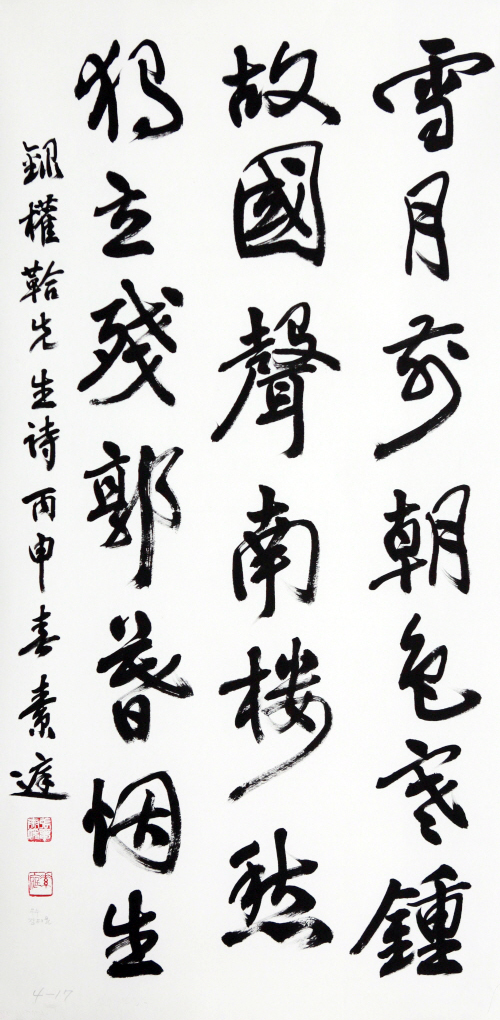 雪月前朝色寒鍾
故國聲南楼愁
獨立殘郭暮烟生
錄權鞈先生诗丙申春素遅
4-17